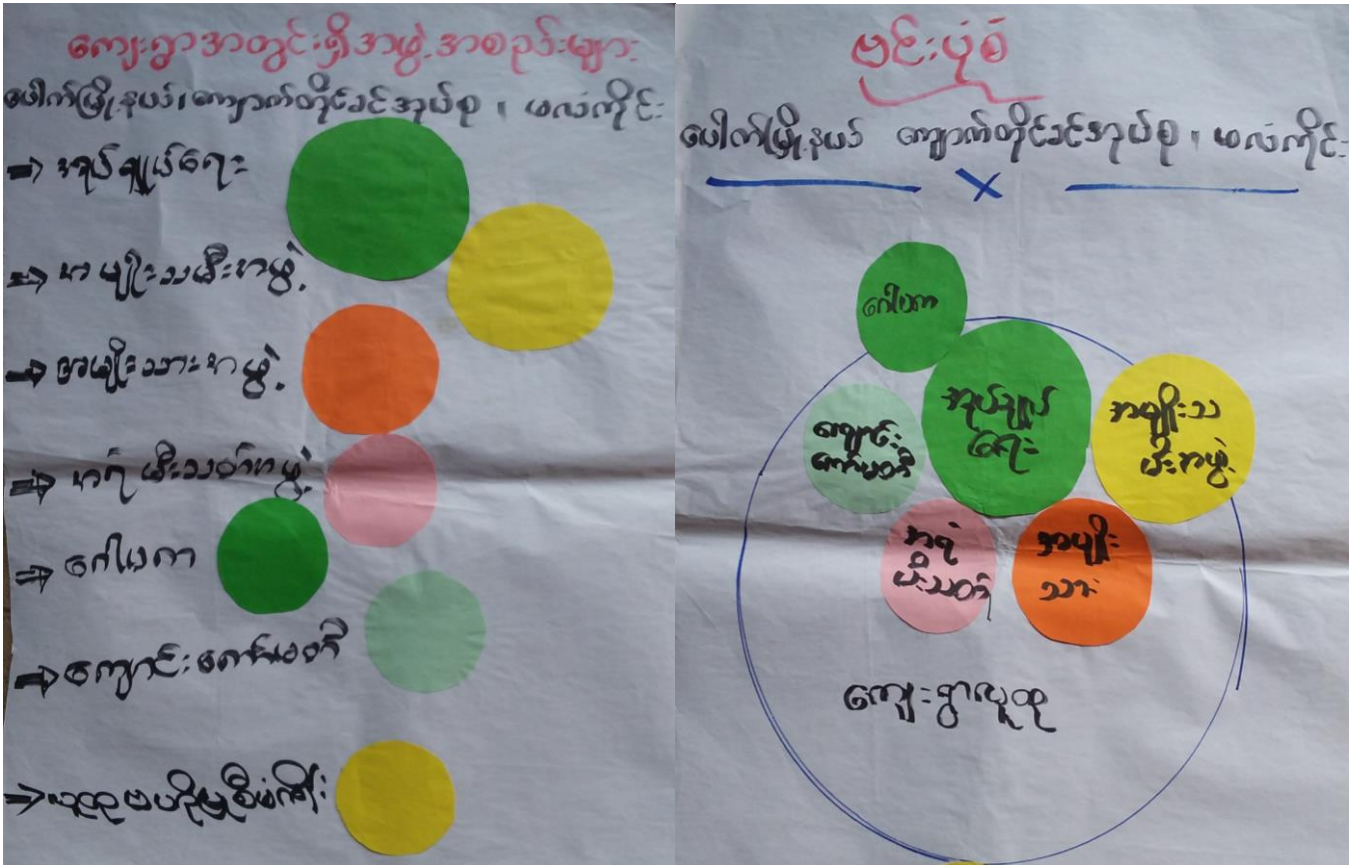 ကျေးရွာအတွင်းရှိအဖွဲ့အစည်းများ
ပေါက်မြို့နယ်၊ ကျောက်တိုင်ခင်အုပ်စု ၊ မလံကိုင်း
⇒ အုပ်ချုပ်ရေး
⇒ အမျိုးသမီးအဖွဲ့
⇒ အမျိုးသားအဖွဲ့
⇒ အရံမီးသတ်အဖွဲ့
⇒ ဂေါပက
⇒ ကျောင်းကော်မတီ
⇒ လူထုဗဟိုပြုစီမံကိန်း
ဗင်းပုံစံ
ပေါက်မြို့နယ် ကျောက်တိုင်ခင်အုပ်စု ၊ မလံကိုင်း
ဂေါပက
အုပ်ချုပ်
ရေး
အမျိုးသ
မီးအဖွဲ့
ကျောင်း
ကော်မတီ
အရံ
မီးသတ်
အမျိုး
သား
ကျေးရွာလူထု